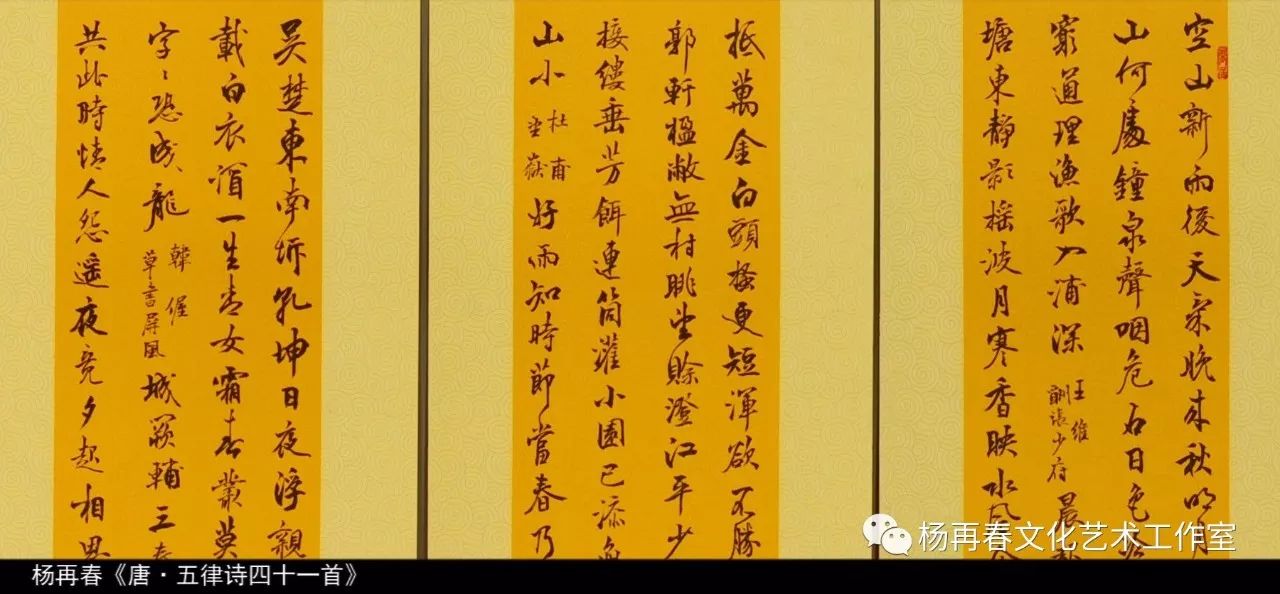 空山新雨後天氣晚來秋明月
山何處鐘泉聲咽危石日色冷
窮通理漁歌入浦深 王維 酬張少府 晨
塘東靜影搖波月寒香映水風
抵萬金白頭搔更短渾欲不勝
郭軒楹敞無村眺望賒澄江平少
接縷垂芳餌連筒灌小園已添無
山小 杜甫 望嶽 好雨知時節當春乃
吳楚東南坼乾坤日夜浮親
載白衣酒一生青女霜春叢莫
字々恐成龍 韓偓 草書屏風 城闕輔三秦
共此時情人怨遙夜竟夕起相思
杨再春文化艺术工作室
杨再春《唐·五律诗四十一首》